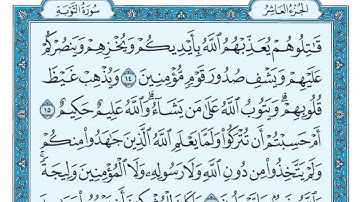 الجزء العاشر
سورة التوبة
قَٰتِلُوهُمْ يُعَذِّبْهُمُ ٱللَّهُ بِأَيْدِيكُمْ وَيُخْزِهِمْ وَيَنصُرْكُمْ
عَلَيْهِمْ وَيَشْفِ صُدُورَ قَوْمٍ مُّؤْمِنِينَ ١٤ وَيُذْهِبْ غَيْظَ
قُلُوبِهِمْ وَيَتُوبُ ٱللَّهُ عَلَىٰ مَن يَشَآءُ وَٱللَّهُ عَلِيمٌ حَكِيمٌ ١٥
أَمْ حَسِبْتُمْ أَن تُتْرَكُوا۟ وَلَمَّا يَعْلَمِ ٱللَّهُ ٱلَّذِينَ جَٰهَدُوا۟ مِنكُمْ
وَلَمْ يَتَّخِذُوا۟ مِن دُونِ ٱللَّهِ وَلَا رَسُولِهِۦ وَلَا ٱلْمُؤْمِنِينَ وَلِيجَةً